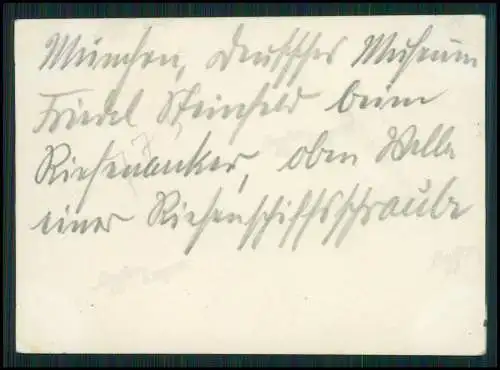 München, Deutsches Museum
Friedel Steinfeld beim
Riesenanker, oben Welle
einer Riesenschiffsschraube